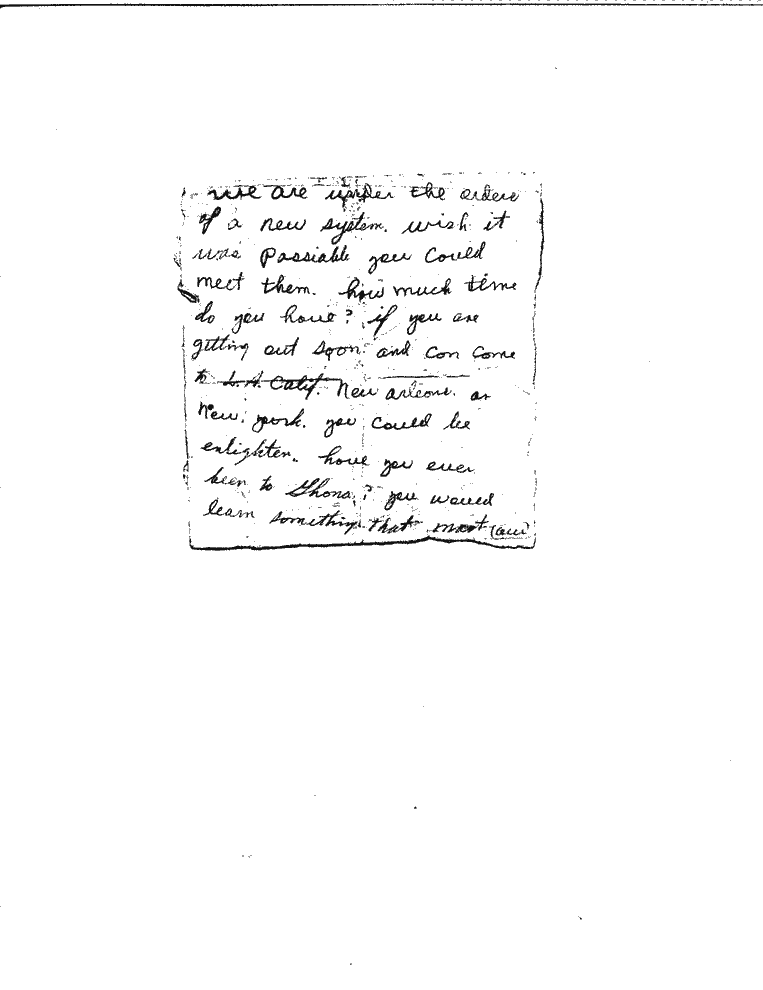 we are under the orders
of a new system. wish it
was Passiable you Could
meet them. how much time
do you have? if you are
getting out soon. and Can Come
to L.A. Calif. New orleone. or
New. york. you Could be
enlighten. have you ever
been to Ghana,? you would
learn something that most